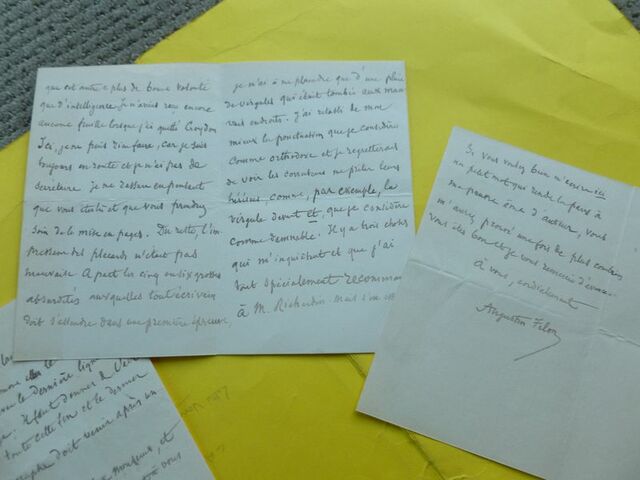 que cet autre a plus de bonne volonté
que d'intelligence. Je n'avais reçu encore
aucune feuille lorsque j'ai quitté Croydon
Ici, je ne puis rien faire, car je suis
toujours en route et je n'ai pas de
secrétaire. Je me rassure en pensant
que vous êtes là et que vous prendrez
soin de la mise en pages. Du reste, l'im
pression des placards n'était pas
mauvaise. A part les cinq ou six grosses
absurdités auxquelles tout écrivain
doit s'attendre dans une première épreuve,
je n'ai à me plaindre que d'une pluie
de virgules qui était tombée aux mau
vais endroits. J'ai rétabli de mon
mieux la ponctuation que je considère
comme orthodoxe et je regretterais
de voir les correcteurs me prêter leurs
hérésies, comme, par exemple, la
virgule devant et, que je considère
comme damnable. Il y a trois choses
qui m'inquiètent et que j'ai
tout spécialement recomman
à M. Richardin. Mais s'en est
Si vous voulez bien m'envoyer ici
un petit mot qui rende la paix à
ma pauvre âme d'auteur, vous
m'aurez prouvé une fois de plus combien
vous êtes bon et je vous remercie d'avance.
À vous, cordialement
Augustin Filon
la dernière lign
il faut donner à
toute cette fin et le dernier
doit venir après un
monsieur, et
à vous